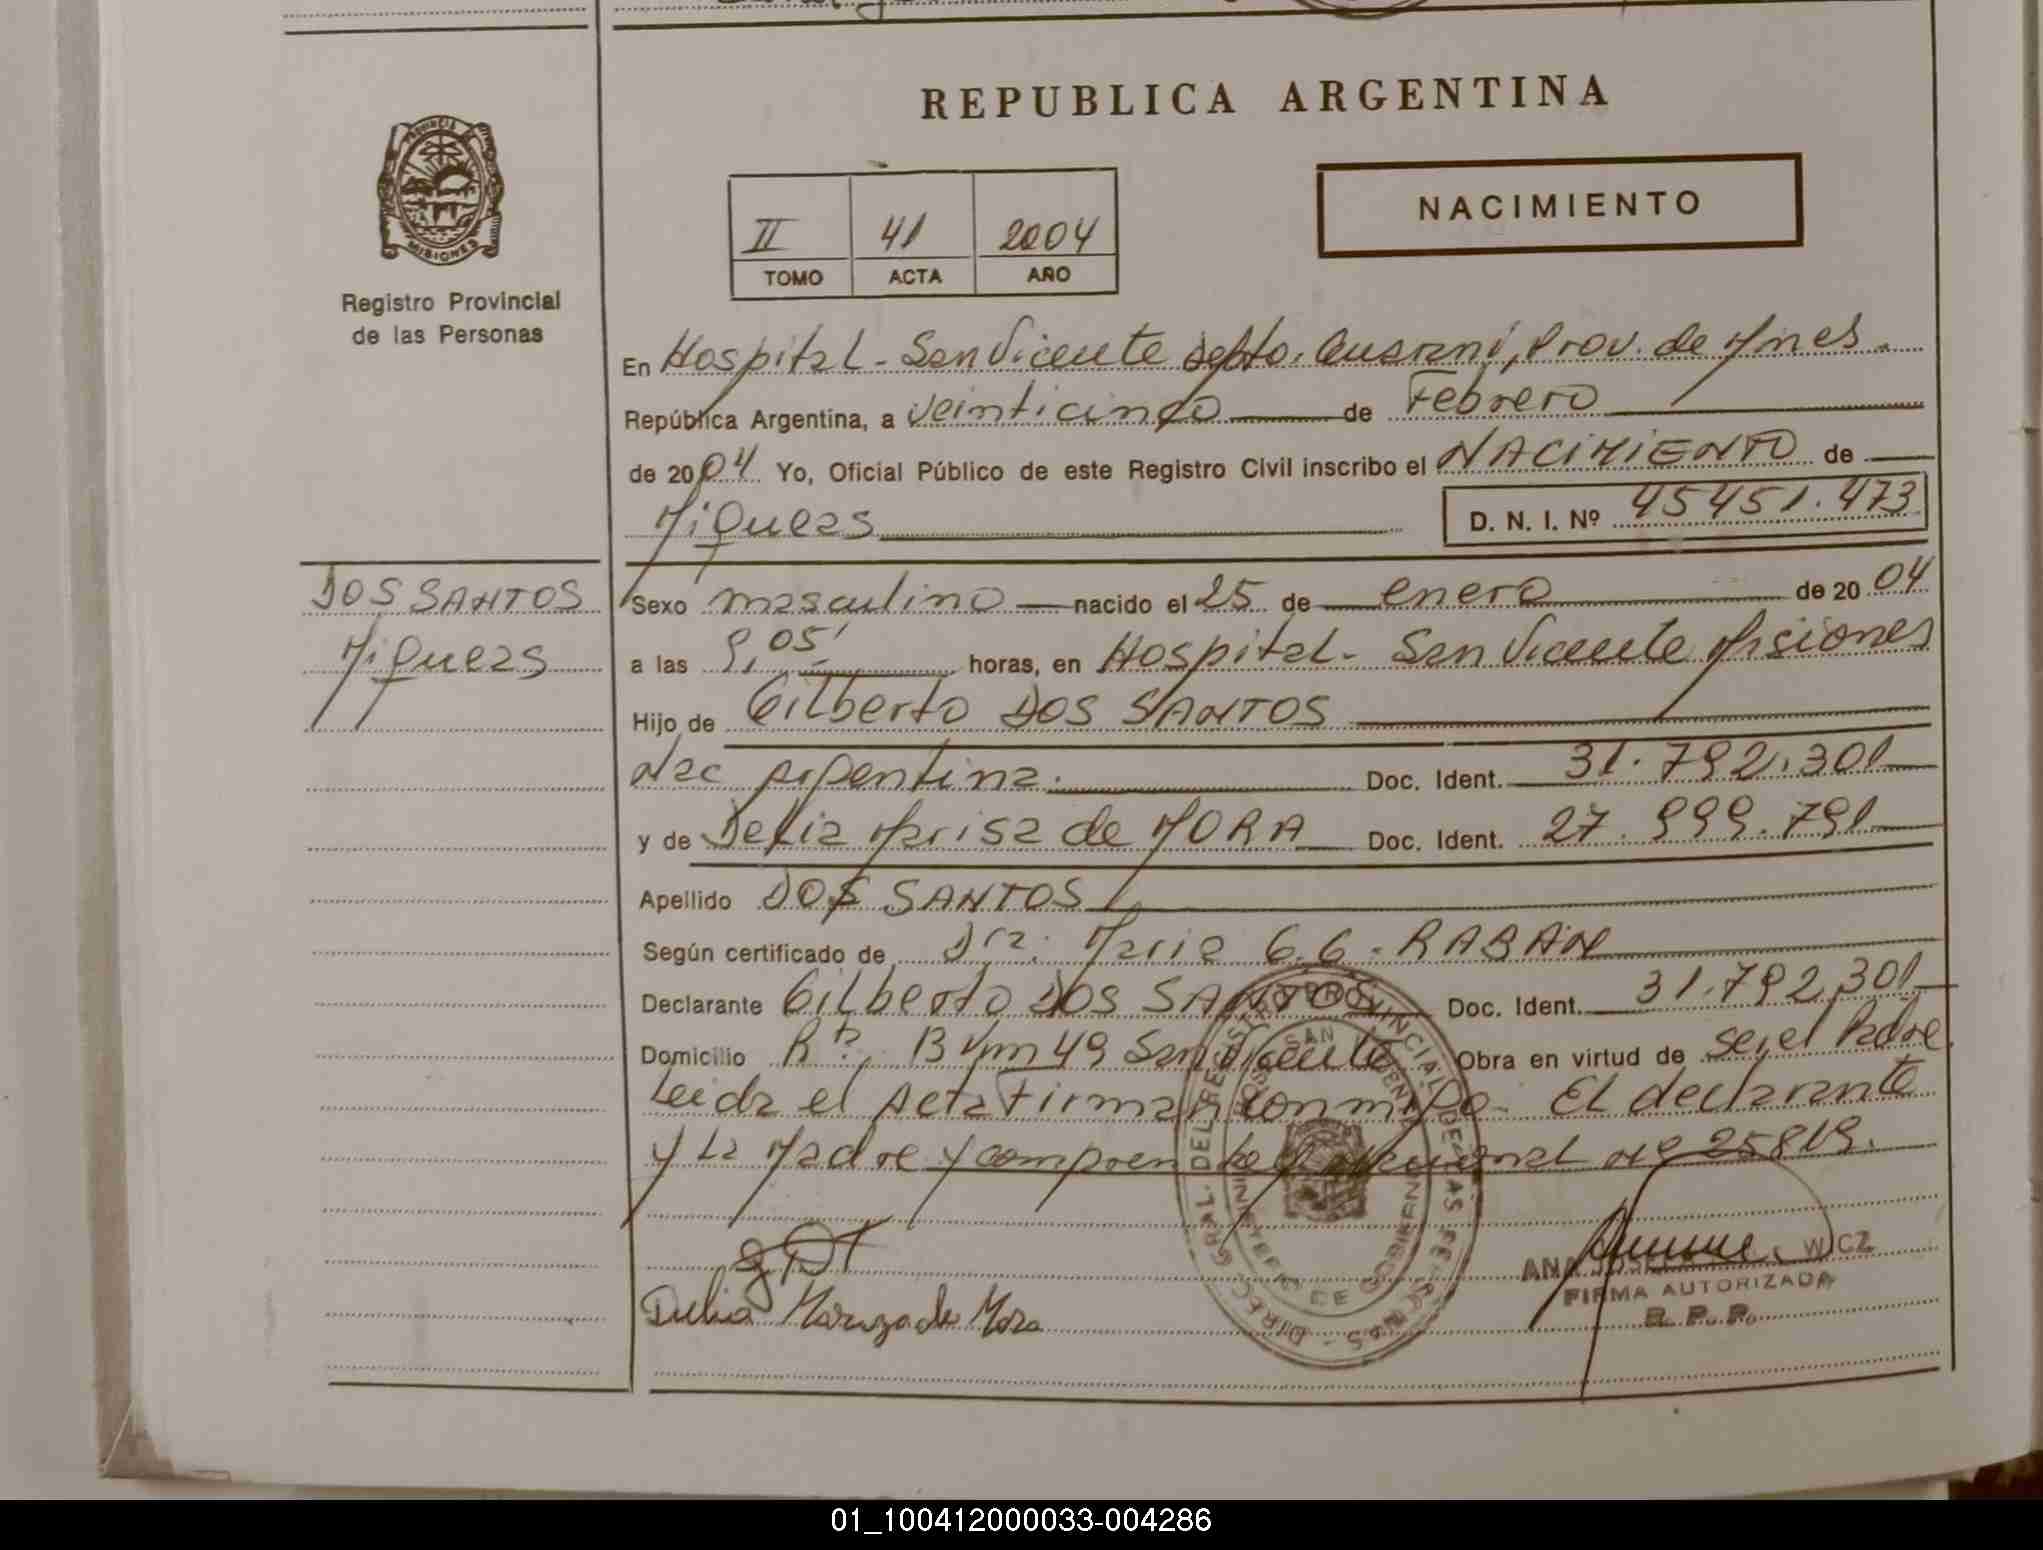 REPUBLICA ARGENTINA
PROVINCIA DE
MISIONES
Registro Provincial
de las Personas
II 41 2004
TOMO ACTA AÑO
NACIMIENTO
En Hospital - San Vicente depto. Guaraní, Prov. de Mnes.
República Argentina, a veinticinco de Febrero
de 2004 Yo, Oficial Público de este Registro Civil inscribo el NACIMIENTO de
Miqueas D. N. I. Nº 45451.473
DOS SANTOS
Miqueas
Sexo masculino nacido el 25 de enero de 2004
a las 9,05' horas, en Hospital - San Vicente Misiones
Hijo de Gilberto DOS SANTOS
Nac argentina. Doc. Ident. 31.792.301
y de Delia Marisa de MORA Doc. Ident. 27.999.791
Apellido DOS SANTOS
Según certificado de Dra. Maria G.G. RABAN
Declarante Gilberto DOS SANTOS Doc. Ident. 31.792.301
Domicilio 13 Km 49 San Vicente Obra en virtud de ser el Padre
Leida el Acta Firman conmigo. El declarante
y La Madre y 25819.
DIREC. GRAL. DEL REGISTRO PROVINCIAL DE LAS PERSONAS
MINISTERIO DE GOBIERNO
SAN VICENTE
Delia Mariza de Mora
ANA JOSEFA WICZ
FIRMA AUTORIZADA
R. P. P.
01_100412000033-004286